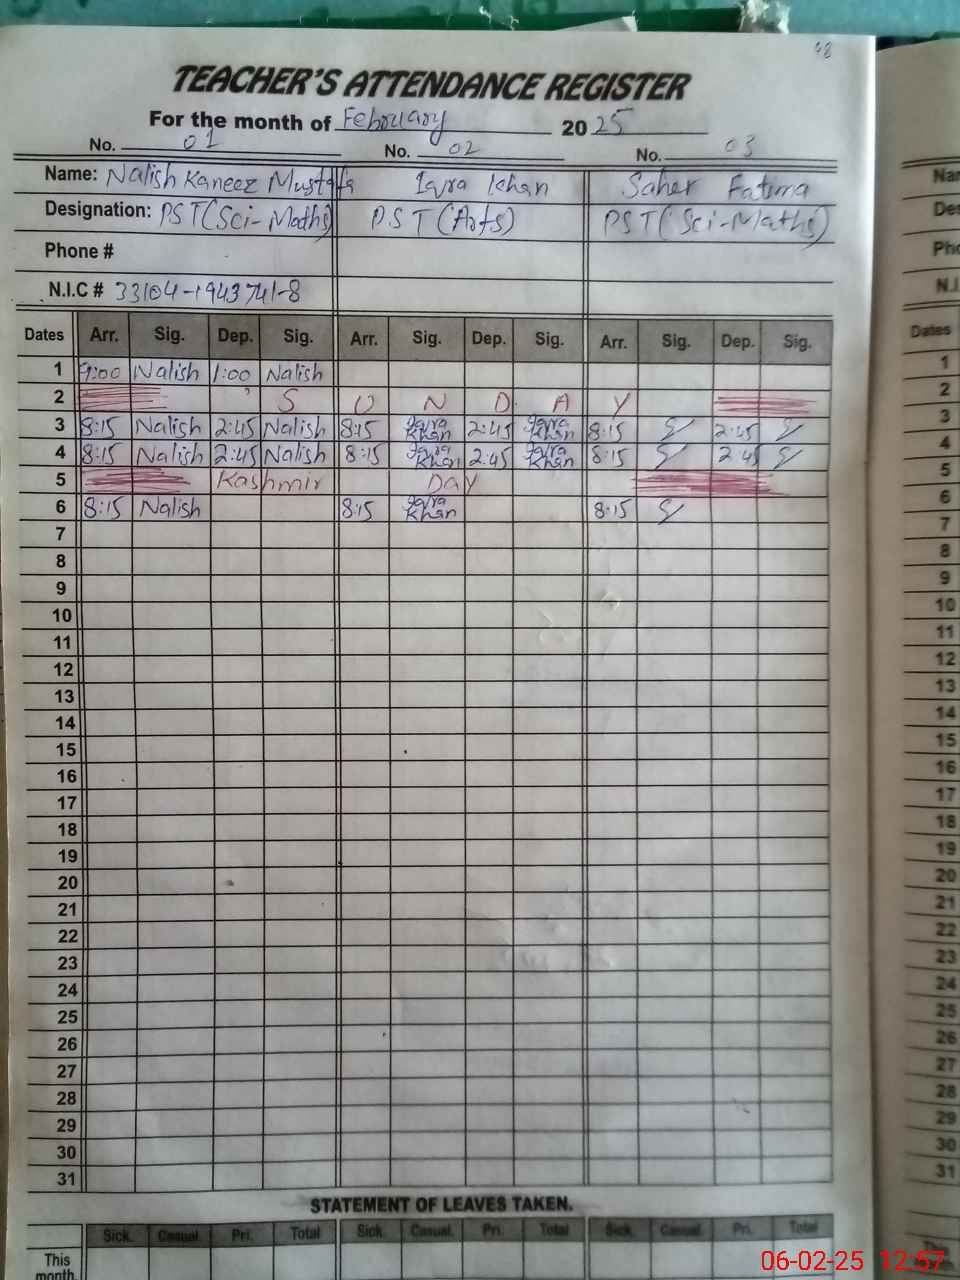 48
TEACHER'S ATTENDANCE REGISTER
For the month of February 2025
No. 01 No. 02 No. 03
Name: Nalish Kaneez Mustafa Iqra Khan Saher Fatima
Designation: PST(Sci-Maths) P.S.T(Arts) PST(Sci-Maths)
Phone #
N.I.C # 33104-1943741-8
Dates Arr. Sig. Dep. Sig. Arr. Sig. Dep. Sig. Arr. Sig. Dep. Sig.
1 9:00 Nalish 1:00 Nalish
2 S U N D A Y
3 8:15 Nalish 2:45 Nalish 8:15 Iqra Khan 2:45 Iqra Khan 8:15 2:45
4 8:15 Nalish 2:45 Nalish 8:15 Iqra Khan 2:45 Iqra Khan 8:15 2:45
5 Kashmir DAY
6 8:15 Nalish 8:15 Iqra Khan 8:15
7
8
9
10
11
12
13
14
15
16
17
18
19
20
21
22
23
24
25
26
27
28
29
30
31
STATEMENT OF LEAVES TAKEN.
Sick. Casual. Pri. Total Sick. Casual. Pri. Total Sick. Casual. Pri. Total
This
month
Dates
1
2
3
4
5
6
7
8
9
10
11
12
13
14
15
16
17
18
19
20
21
22
23
24
25
26
27
28
29
30
31
06-02-25 12:57